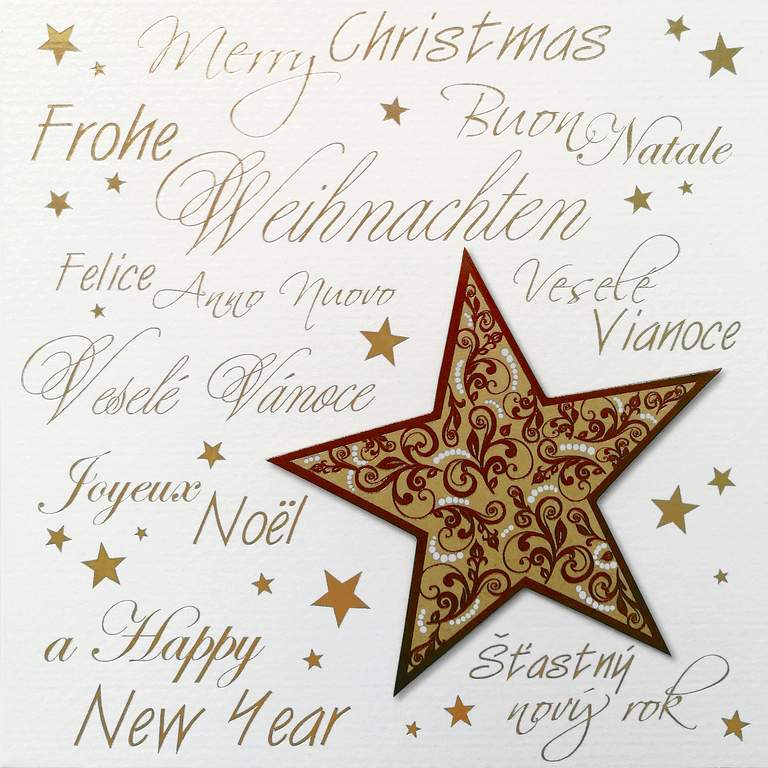 Merry Christmas
Frohe
Buon Natale
Weihnachten
Felice Anno Nuovo
Veselé
Vianoce
Veselé Vánoce
Joyeux
Noël
a Happy
New Year
Šťastný
nový rok